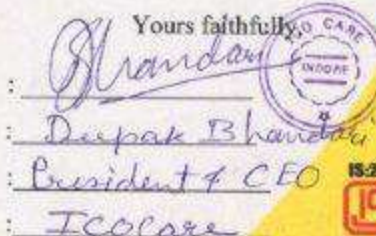 Yours faithfully,
CARE
INDORE
: Bhandari
: Deepak Bhandari
: President & CEO
: ICOCare